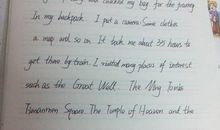 and checked my bag for the journey
In my backpack. I put a camera. Some clothes
a map and so on. It took me about 35 hours to
get there by train. I visited many places of interest
such as the Great Wall. The Ming Tombs
Tiananmen Square. The Temple of Heaven and the